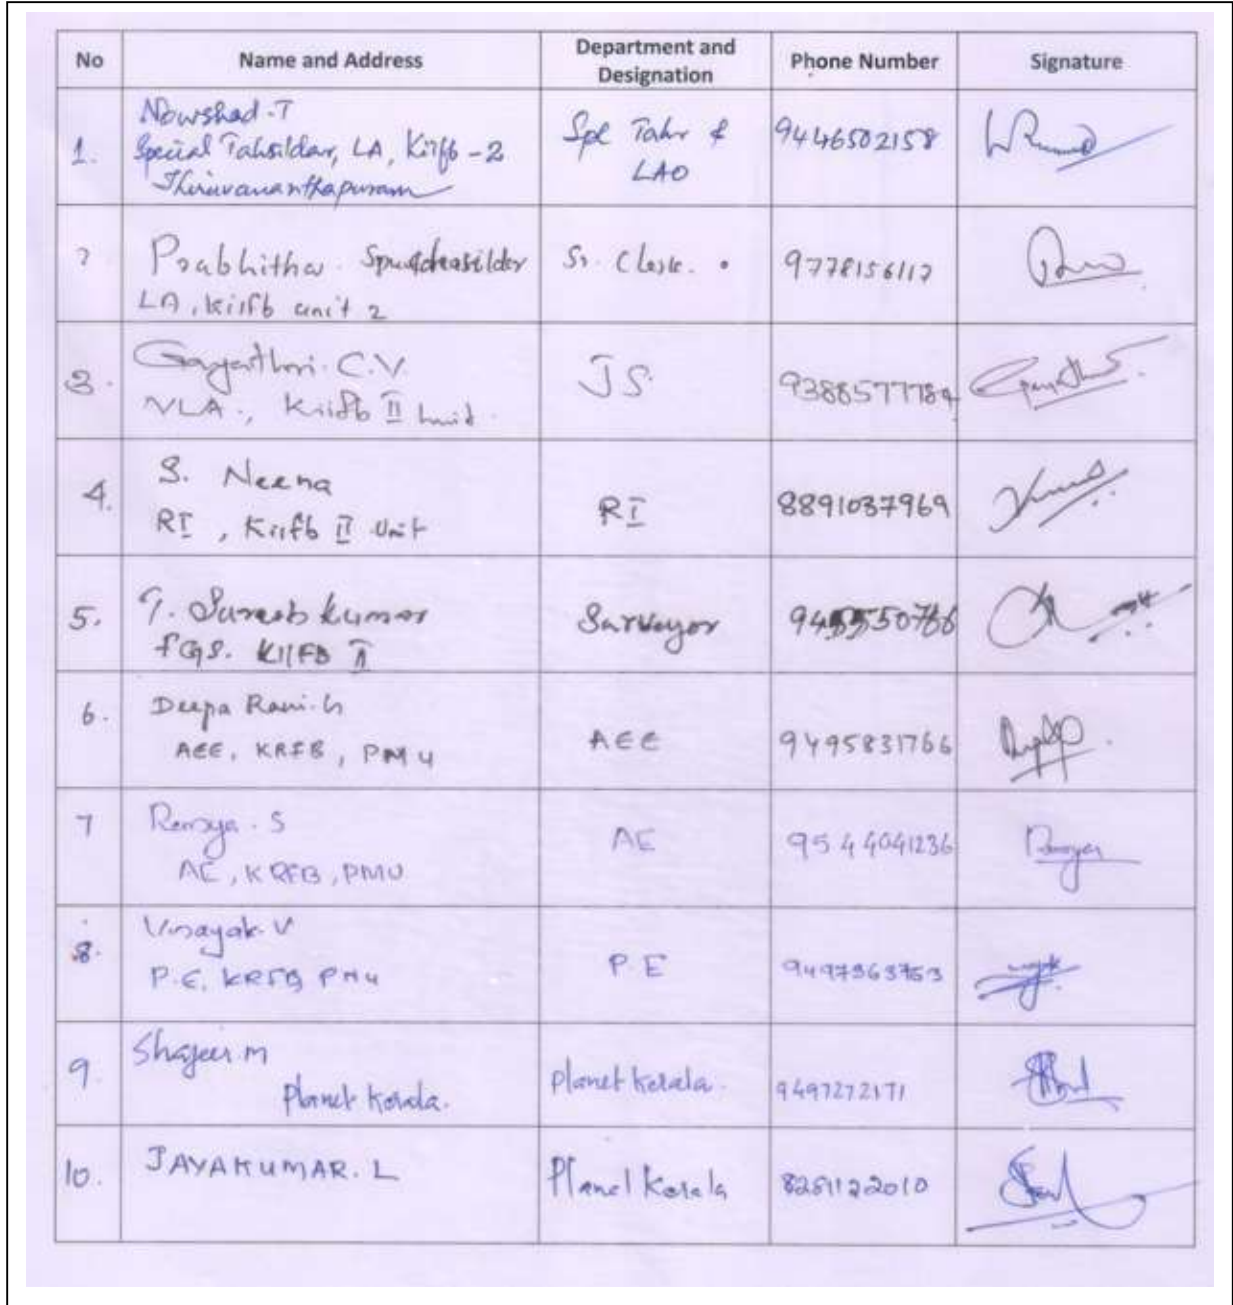 No Name and Address Department and Designation Phone Number Signature
1. Nowshad.T
Special Tahsildar, LA, Kiifb - 2
Thiruvananthapuram
Spl Tahr &
LAO
9446502158
2 Prabhitha.
LA, kiifb unit 2
Sr. Clerk.
9778156117
3. Gayathri. C.V.
VLA., Kiifb II Unit.
JS.
4. S. Neena
RI, Kiifb II Unit
RI
8891037969
5. T. Suresh kumar
FGS. KIIFB II
Surveyor
6. Deepa Rani. G
AEE, KRFB, PMU
AEE
9495831766
7 Remya. S
AE, KRFB, PMU
AE
9544041236
8. Vinayak. V
P.E, KRFB PMU
P.E
9497363753
9. Shajeer m
Planet Kerala.
Planet Kerala.
9497272171
10. JAYAKUMAR. L
Planet Kerala